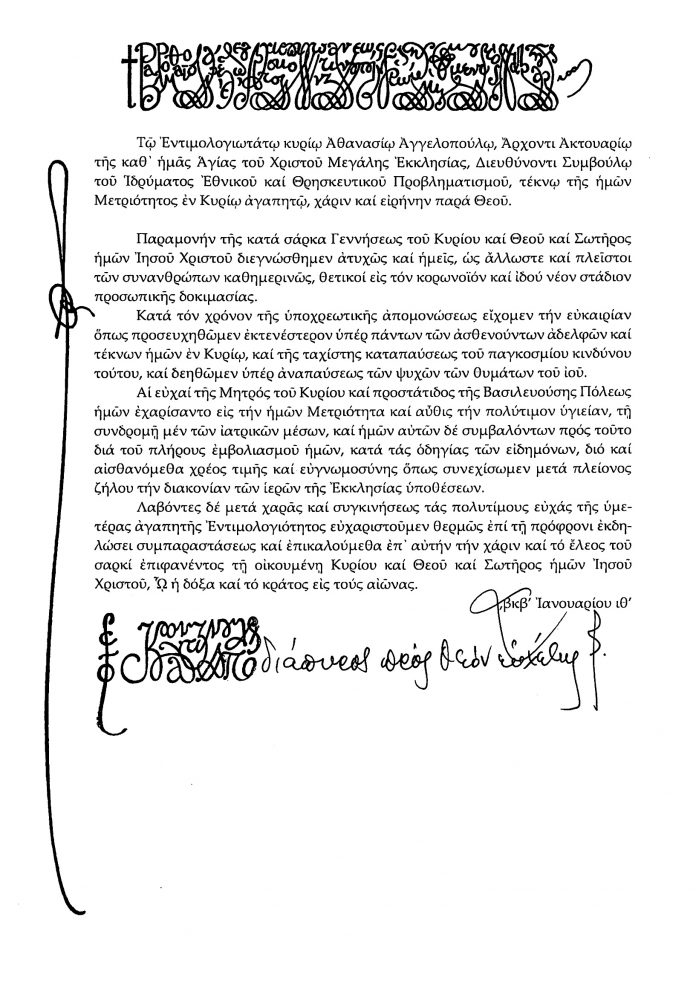 Τῷ Ἐντιμολογιωτάτῳ κυρίῳ Ἀθανασίῳ Ἀγγελοπούλῳ, Ἄρχοντι Ἀκτουαρίῳ
τῆς καθ᾿ ἡμᾶς Ἁγίας τοῦ Χριστοῦ Μεγάλης Ἐκκλησίας, Διευθύνοντι Συμβούλῳ
τοῦ Ἱδρύματος Ἐθνικοῦ καί Θρησκευτικοῦ Προβληματισμοῦ, τέκνῳ τῆς ἡμῶν
Μετριότητος ἐν Κυρίῳ ἀγαπητῷ, χάριν καί εἰρήνην παρά Θεοῦ.
Παραμονήν τῆς κατά σάρκα Γεννήσεως τοῦ Κυρίου καί Θεοῦ καί Σωτῆρος
ἡμῶν Ἰησοῦ Χριστοῦ διεγνώσθημεν ἀτυχῶς καί ἡμεῖς, ὡς ἄλλωστε καί πλεῖστοι
τῶν συνανθρώπων καθημερινῶς, θετικοί εἰς τόν κορωνοϊόν καί ἰδού νέον στάδιον
προσωπικῆς δοκιμασίας.
Κατά τόν χρόνον τῆς ὑποχρεωτικῆς ἀπομονώσεως εἴχομεν τήν εὐκαιρίαν
ὅπως προσευχηθῶμεν ἐκτενέστερον ὑπέρ πάντων τῶν ἀσθενούντων ἀδελφῶν καί
τέκνων ἡμῶν ἐν Κυρίῳ, καί τῆς ταχίστης καταπαύσεως τοῦ παγκοσμίου κινδύνου
τούτου, καί δεηθῶμεν ὑπέρ ἀναπαύσεως τῶν ψυχῶν τῶν θυμάτων τοῦ ἰοῦ.
Αἱ εὐχαί τῆς Μητρός τοῦ Κυρίου καί προστάτιδος τῆς Βασιλευούσης Πόλεως
ἡμῶν ἐχαρίσαντο εἰς τήν ἡμῶν Μετριότητα καί αὖθις τήν πολύτιμον ὑγιείαν, τῇ
συνδρομῇ μέν τῶν ἰατρικῶν μέσων, καί ἡμῶν αὐτῶν δέ συμβαλόντων πρός τοῦτο
διά τοῦ πλήρους ἐμβολιασμοῦ ἡμῶν, κατά τάς ὁδηγίας τῶν εἰδημόνων, διό καί
αἰσθανόμεθα χρέος τιμῆς καί εὐγνωμοσύνης ὅπως συνεχίσωμεν μετά πλείονος
ζήλου τήν διακονίαν τῶν ἱερῶν τῆς Ἐκκλησίας ὑποθέσεων.
Λαβόντες δέ μετά χαρᾶς καί συγκινήσεως τάς πολυτίμους εὐχάς τῆς ὑμε-
τέρας ἀγαπητῆς Ἐντιμολογιότητος εὐχαριστοῦμεν θερμῶς ἐπί τῇ πρόφρονι ἐκδη-
λώσει συμπαραστάσεως καί ἐπικαλούμεθα ἐπ᾿ αὐτήν τήν χάριν καί τό ἔλεος τοῦ
σαρκί ἐπιφανέντος τῇ οἰκουμένῃ Κυρίου καί Θεοῦ καί Σωτῆρος ἡμῶν Ἰησοῦ
Χριστοῦ, Ὧ ἡ δόξα καί τό κράτος εἰς τούς αἰῶνας.
͵βκβ′ Ἰανουαρίου ιθ′
διάπυρος πρός Θεόν εὐχέτης